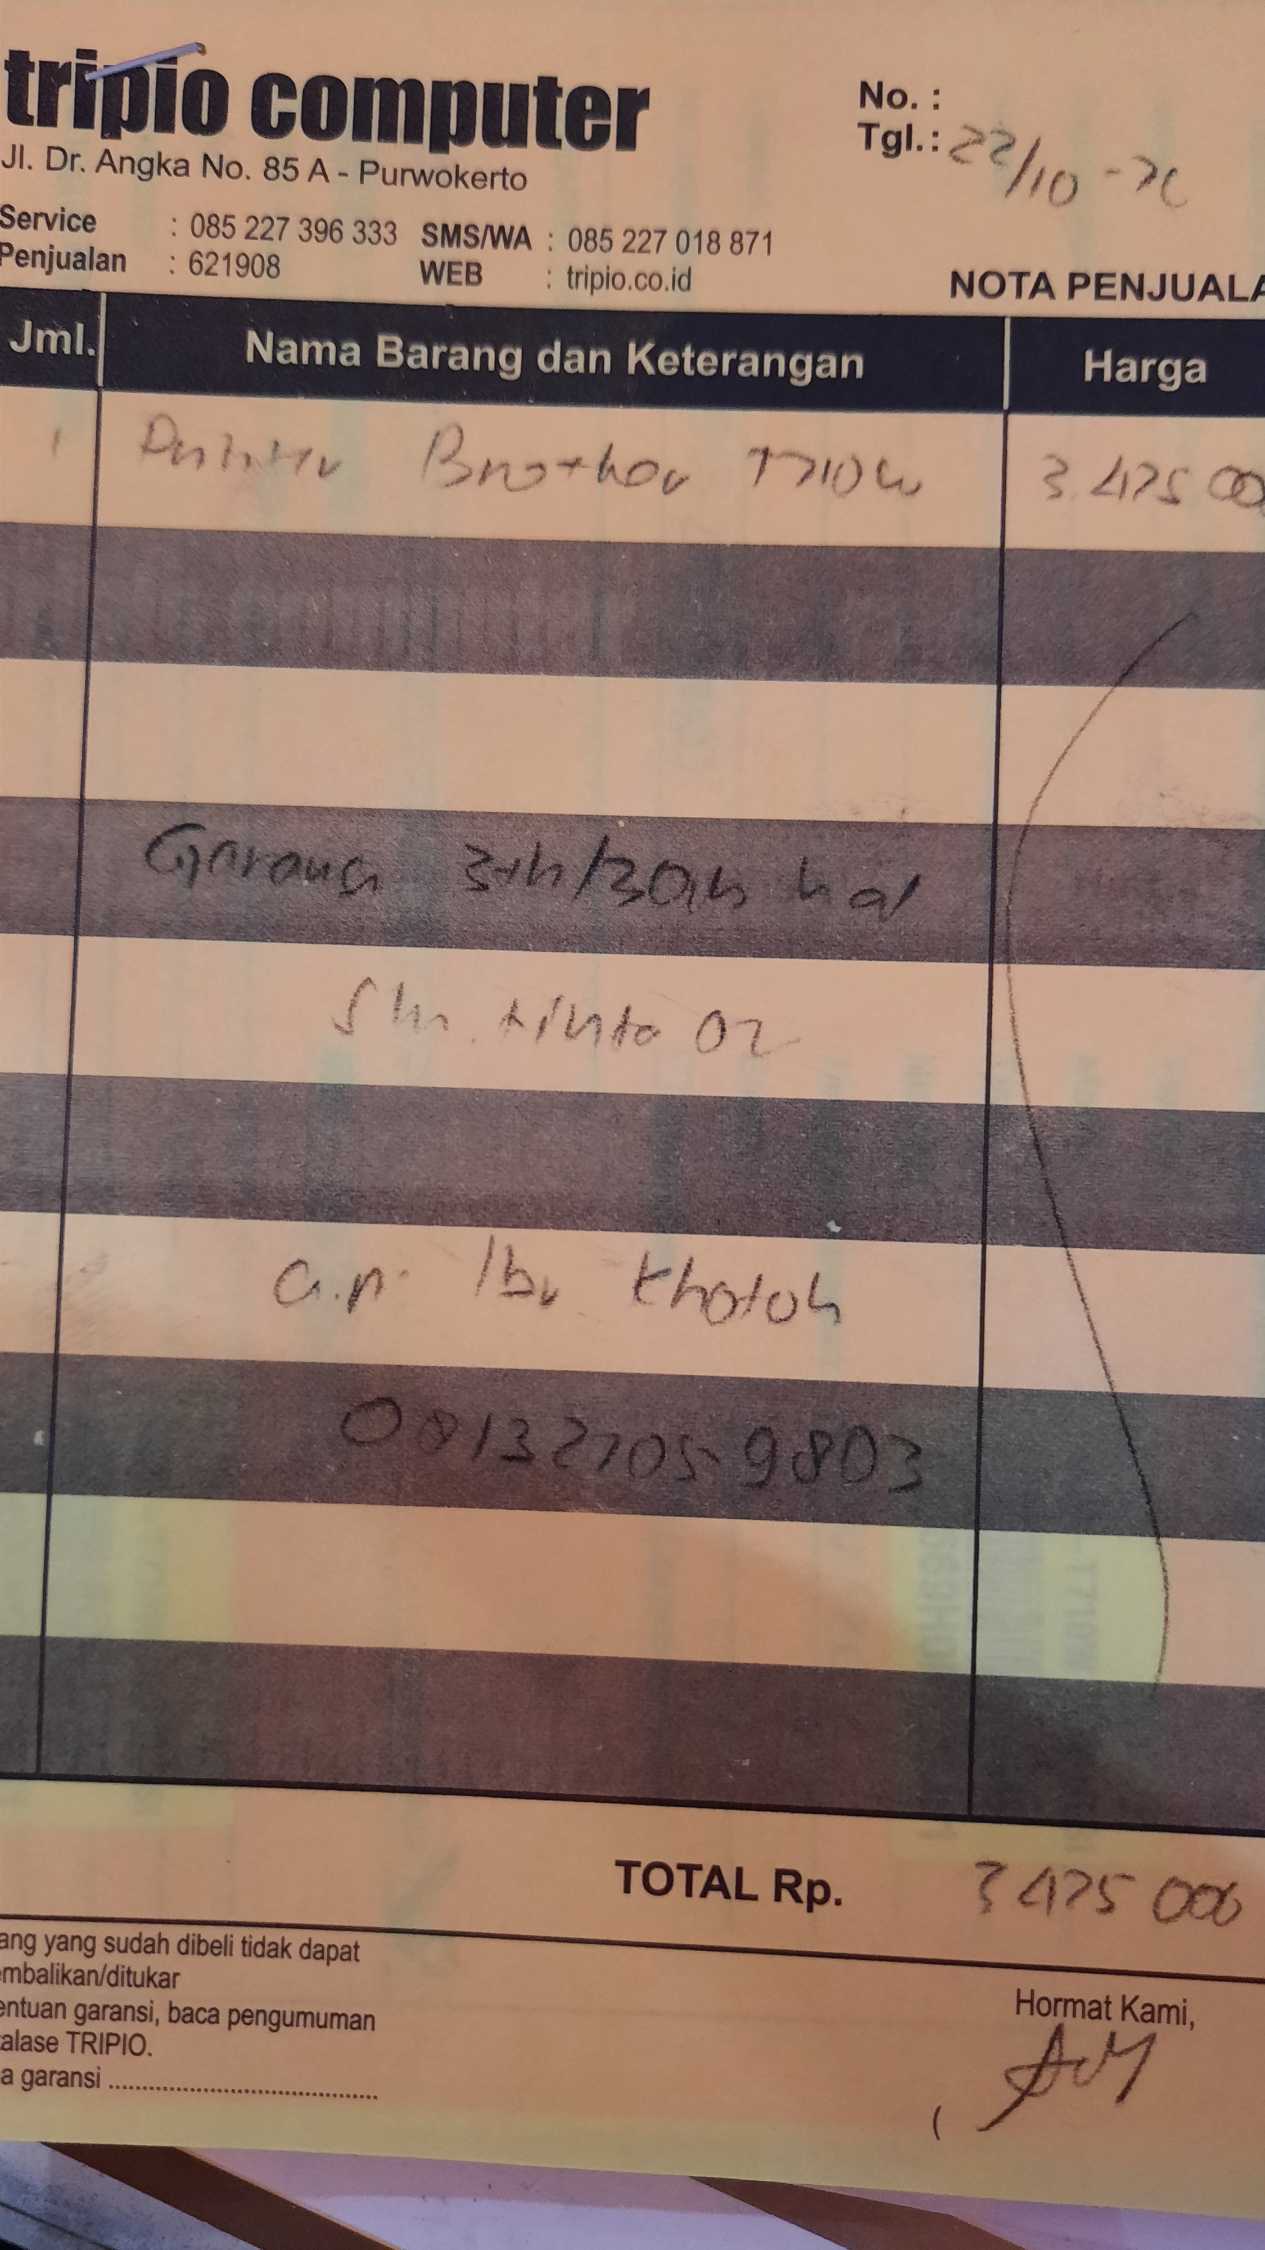 tripio computer
Jl. Dr. Angka No. 85 A - Purwokerto
No. :
Tgl.: 22/10 -
Service : 085 227 396 333 SMS/WA : 085 227 018 871
Penjualan : 621908 WEB : tripio.co.id
NOTA PENJUALA
Jml. Nama Barang dan Keterangan Harga
1 Printer Brother T710W 3.475 00
Garansi 3th/30rb hal
tinta 02
a.n. Ibu Khotoh
081327059803
TOTAL Rp. 3 475 000
ang yang sudah dibeli tidak dapat
embalikan/ditukar
entuan garansi, baca pengumuman
alase TRIPIO.
a garansi ........................................
Hormat Kami,